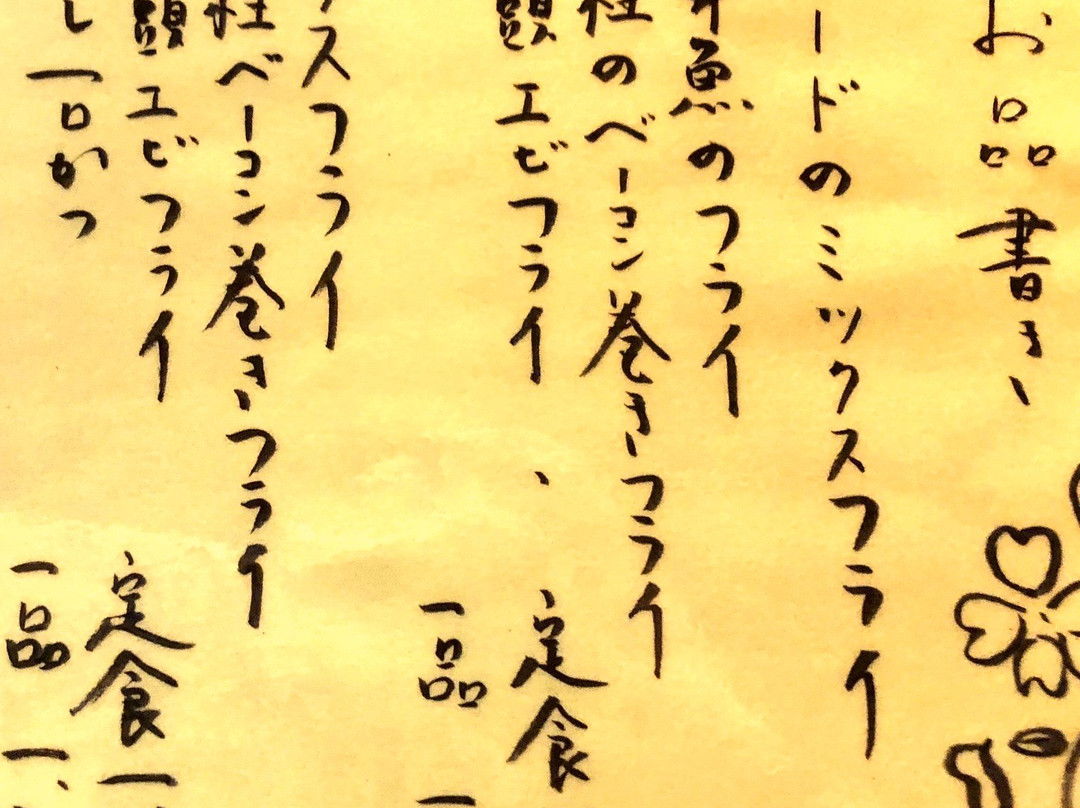 お品書き
ードのミックスフライ
魚のフライ
柱のベーコン巻きフライ
頭エビフライ
定食
一品 一
スフライ
柱ベーコン巻きフライ
頭エビフライ
し一口かつ
定食 一
一品 一